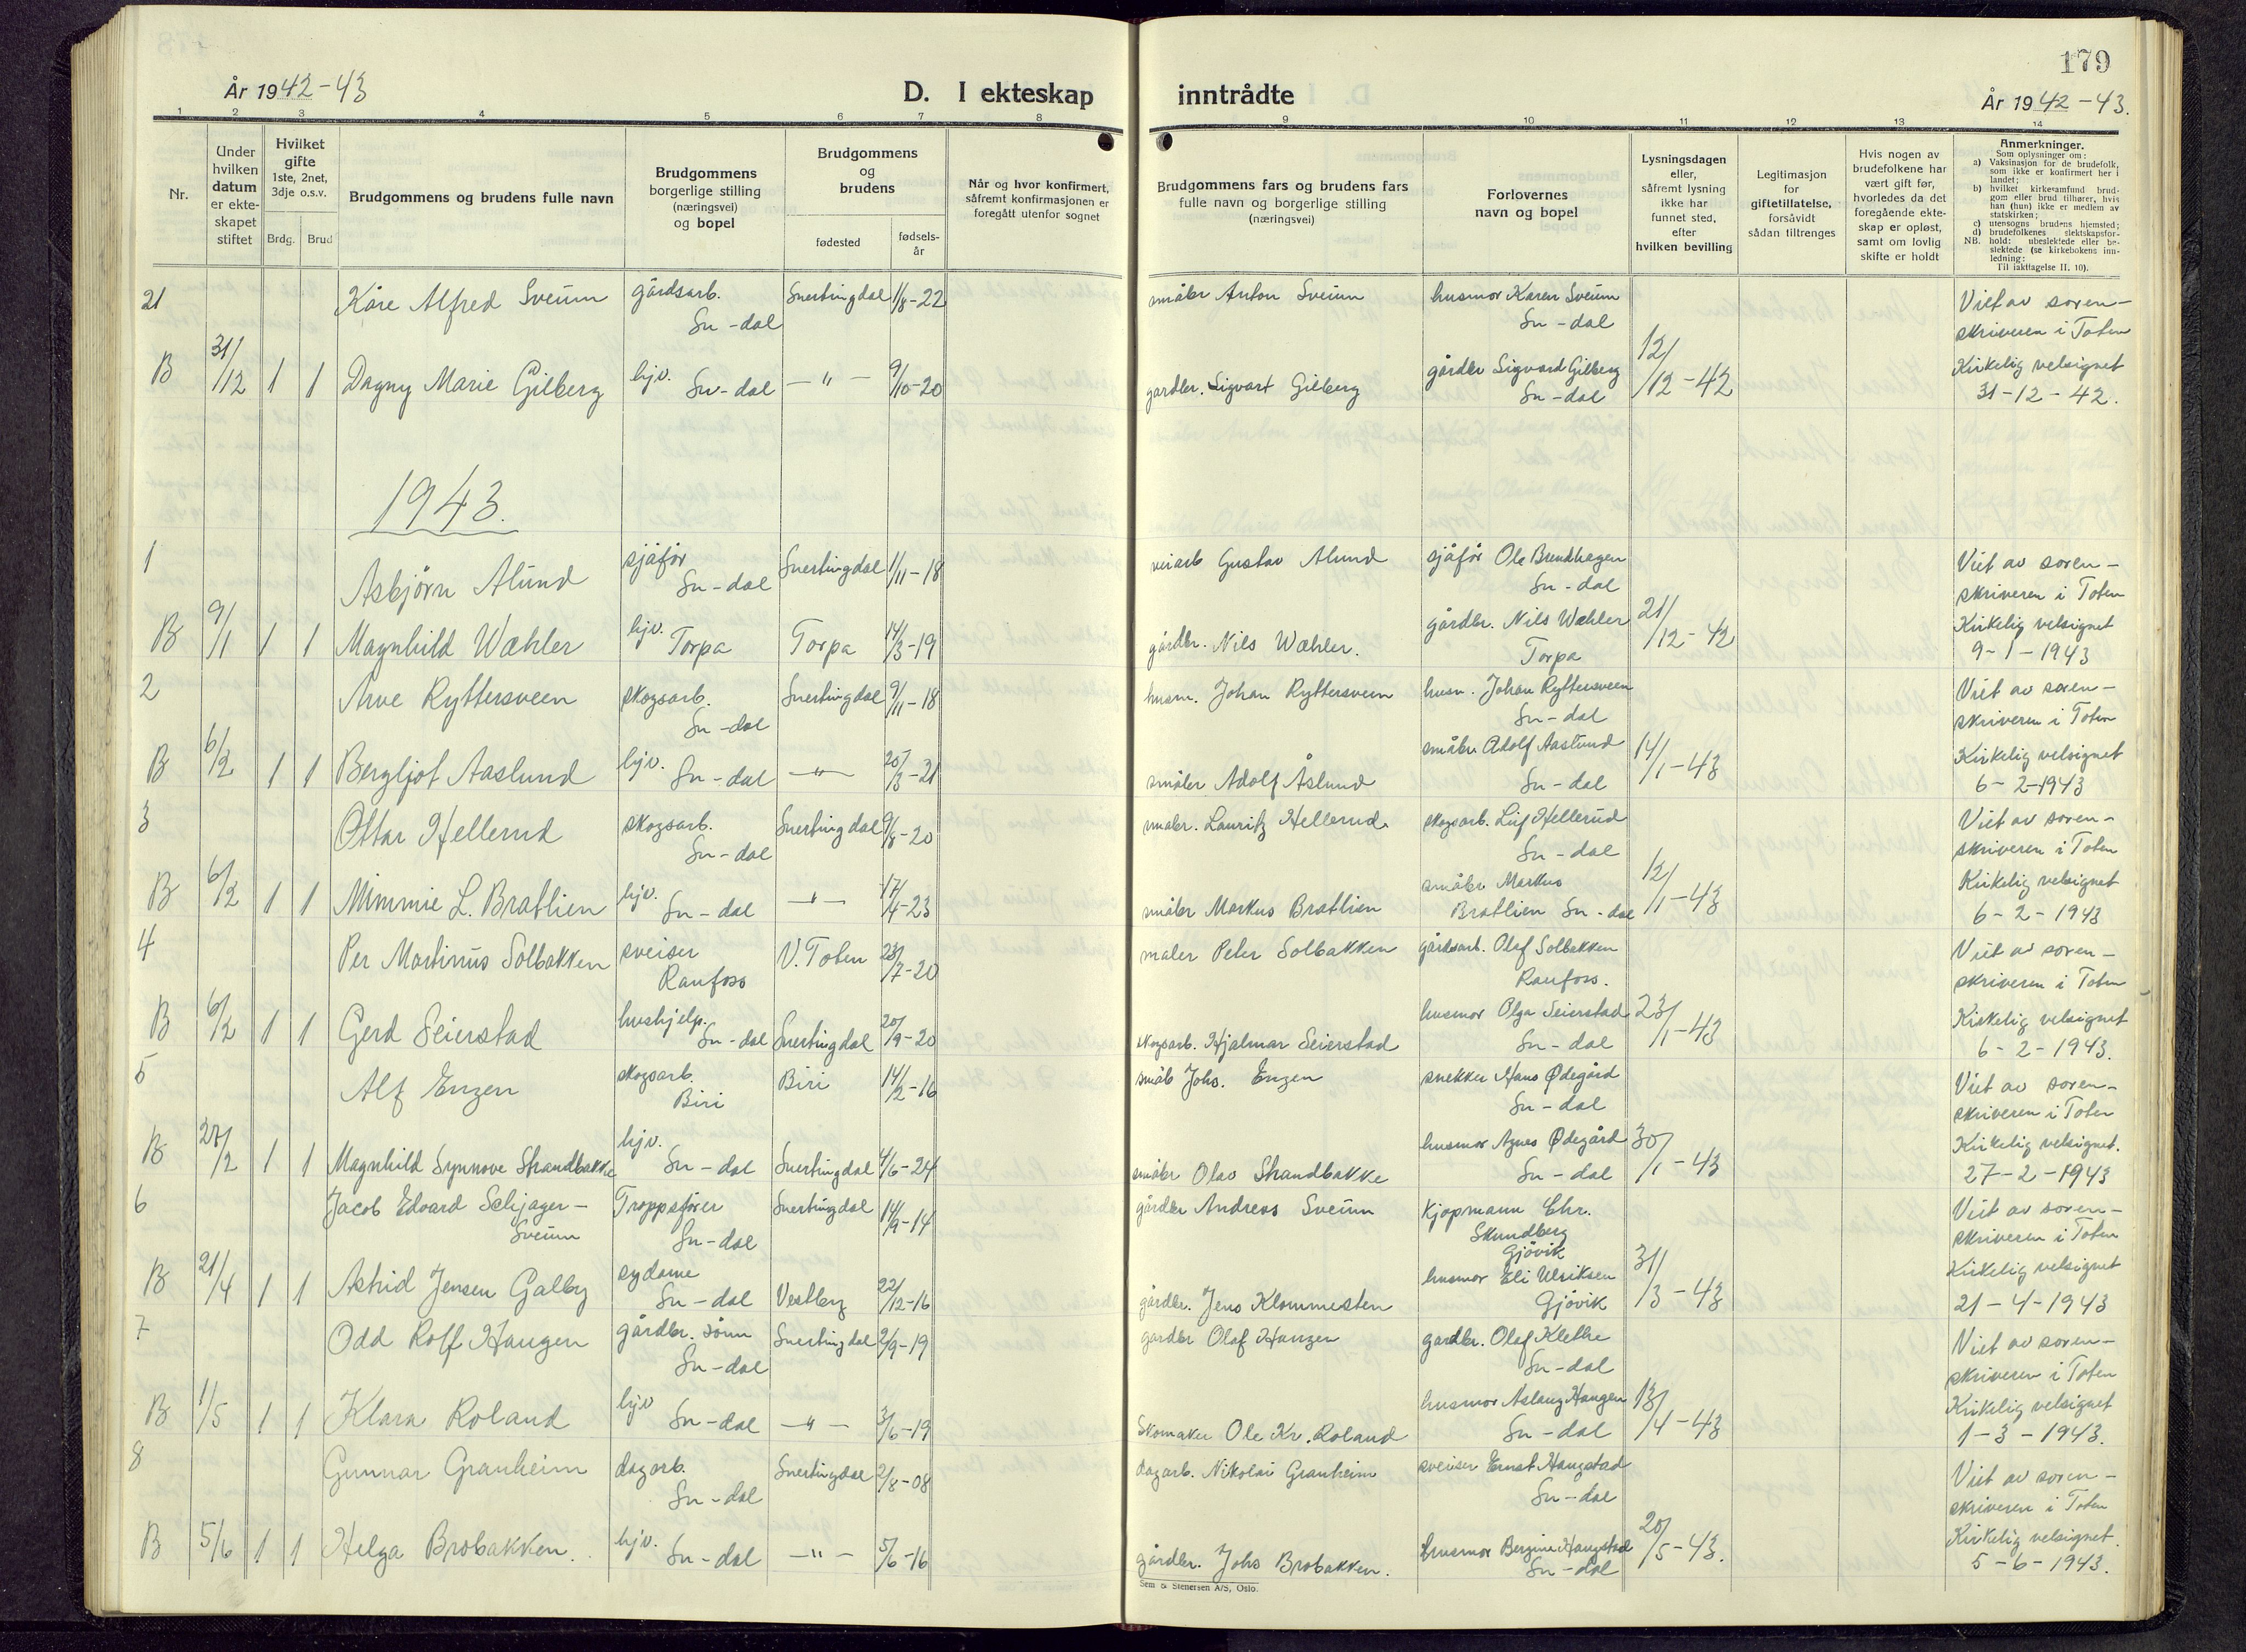 179
År 1942-43
D. I ekteskap inntrådte
År 1942-43.
1 2 3 4 5 6 7 8 9 10 11 12 13 14
Nr.
Under hvilken datum er ekte-skapet stiftet
Hvilket gifte 1ste, 2net, 3dje o.s.v.
Brdg. Brud
Brudgommens og brudens fulle navn
Brudgommens borgerlige stilling (næringsvei) og bopel
Brudgommens og brudens
fødested
fødsels-år
Når og hvor konfirmert, såfremt konfirmasjonen er foregått utenfor sognet
Brudgommens fars og brudens fars fulle navn og borgerlige stilling (næringsvei)
Forlovernes navn og bopel
Lysningsdagen eller, såfremt lysning ikke har funnet sted, efter hvilken bevilling
Legitimasjon for giftetillatelse, forsåvidt sådan tiltrenges
Hvis nogen av brudefolkene har vært gift før, hvorledes da det foregående ekte-skap er opløst, samt om lovlig skifte er holdt
Anmerkninger.
Som oplysninger om:
a) Vaksinasjon for de brudefolk, som ikke er konfirmert her i landet;
b) hvilket kirkesamfund brud-gom eller brud tilhører, hvis han (hun) ikke er medlem av statskirken;
c) utensogns brudens hjemsted;
d) brudefolkenes slektskapsfor-hold: ubeslektede eller be-slektede (se kirkebokens inn-ledning:
NB. Til iakttagelse II. 10).
21 Kåre Alfred Sveum gårdsarb. Sn-dal Snertingdal 1/8-22 småbr Anton Sveum husmor Karen Sveum Sn-dal Viet av soren-skriveren i Toten
B 31/12 1 1 Dagny Marie Gilberg hjv. Sn-dal -"- 9/10-20 gardbr. Sigvart Gilberg gårdbr Sigvard Gilberg Sn-dal 12/12-42 Kirkelig velsignet 31-12-42.
1943.
1 Asbjörn Alund sjåför Sn-dal Snertingdal 1/11-18 veiarb Gustav Alund sjåför Ole Brendhagen Sn-dal Viet av soren-skriveren i Toten
B 9/1 1 1 Magnhild Wæhler hjv. Torpa Torpa 14/3-19 gårdbr. Nils Wæhler. gårdbr. Nils Wæhler Torpa 21/12-42 Kirkelig velsignet 9-1-1943
2 Arve Ryttersveen skogsarb. Sn-dal Snertingdal 9/11-18 husm. Johan Ryttersveen husm. Johan Ryttersveen Sn-dal Viet av soren-skriveren i Toten
B 6/2 1 1 Bergljot Aaslund hjv. Sn-dal -"- 20/3-21 småbr Adolf Åslund småbr Adolf Aaslund Sn-dal 14/1-43 Kirkelig velsignet 6-2-1943
3 Ottar Hellerud skogsarb. Sn-dal Snertingdal 9/8-20 småbr. Lauritz Hellerud. skogsarb. Leif Hellerud Sn-dal Viet av soren-skriveren i Toten
B 6/2 1 1 Mimmie L. Bratlien hjv. Sn-dal -"- 17/4-23 småbr Markus Bratlien småbr Markus Bratlien Sn-dal 12/1-43 Kirkelig velsignet 6-2-1943
4 Per Martinus Solbakken sveiser Raufoss V. Toten 28/7-20 maler Peter Solbakken gårdsarb. Olaf Solbakken Raufoss. Viet av soren-skriveren i Toten
B 6/2 1 1 Gerd Seierstad hushjelp. Sn-dal Snertingdal 20/9-20 skogsarb. Hjalmar Seierstad husmor Olga Seierstad Sn-dal 23/1-43 Kirkelig velsignet 6-2-1943.
5 Alf Engen skogsarb. Biri Biri 14/2-16 småb Johs. Engen snekker Hans Ødegård Sn-dal Viet av soren-skriveren i Toten
B 27/2 1 1 Magnhild Synnøve Strandbakke hjv. Sn-dal Snertingdal 4/6-24 småbr Olav Strandbakke husmor Agnes Ødegård Sn-dal 30/1-43 Kirkelig velsignet. 27-2-1943
6 Jacob Edvard Schjager-Sveum Troppsfører Sn-dal Snertingdal 14/9-14 gårdbr Andreas Sveum Kjøpmann Chr. Skundberg Gjövik Viet av soren-skriveren i Toten
B 21/4 1 1 Astrid Jensen Galby sydame Sn-dal Vestby 22/12-16 gårdbr. Jens Klommesten husmor Eli Ulriksen Gjövik 31/3-43 Kirkelig velsignet 21-4-1943
7 Odd Rolf Haugen gårdbr. sönn Sn-dal Snertingdal 2/9-19 gardbr Olaf Haugen gardbr. Olaf Klethe Sn-dal Viet av soren-skriveren i Toten
B 1/5 1 1 Klara Roland hjv Sn-dal -"- 3/6-19 Skomaker Ole Kr. Roland husmor Aslaug Haugen Sn-dal 13/4-43 Kirkelig velsignet 1-3-1943.
8 Gunnar Granheim dagarb. Sn-dal Snertingdal 2/8-08 dagarb. Nikolai Granheim sveiser Ernst Haugstad Sn-dal Viet av soren-skriveren i Toten
B 5/6 1 1 Helga Brobakken. hjv. Sn-dal -"- 5/6-16 gårdbr. Johs Brobakken. husmor Bergine Haugstad Sn-dal 20/5-43. Kirkelig velsignet. 5-6-1943.
Sem & Stenersen A/S, Oslo.